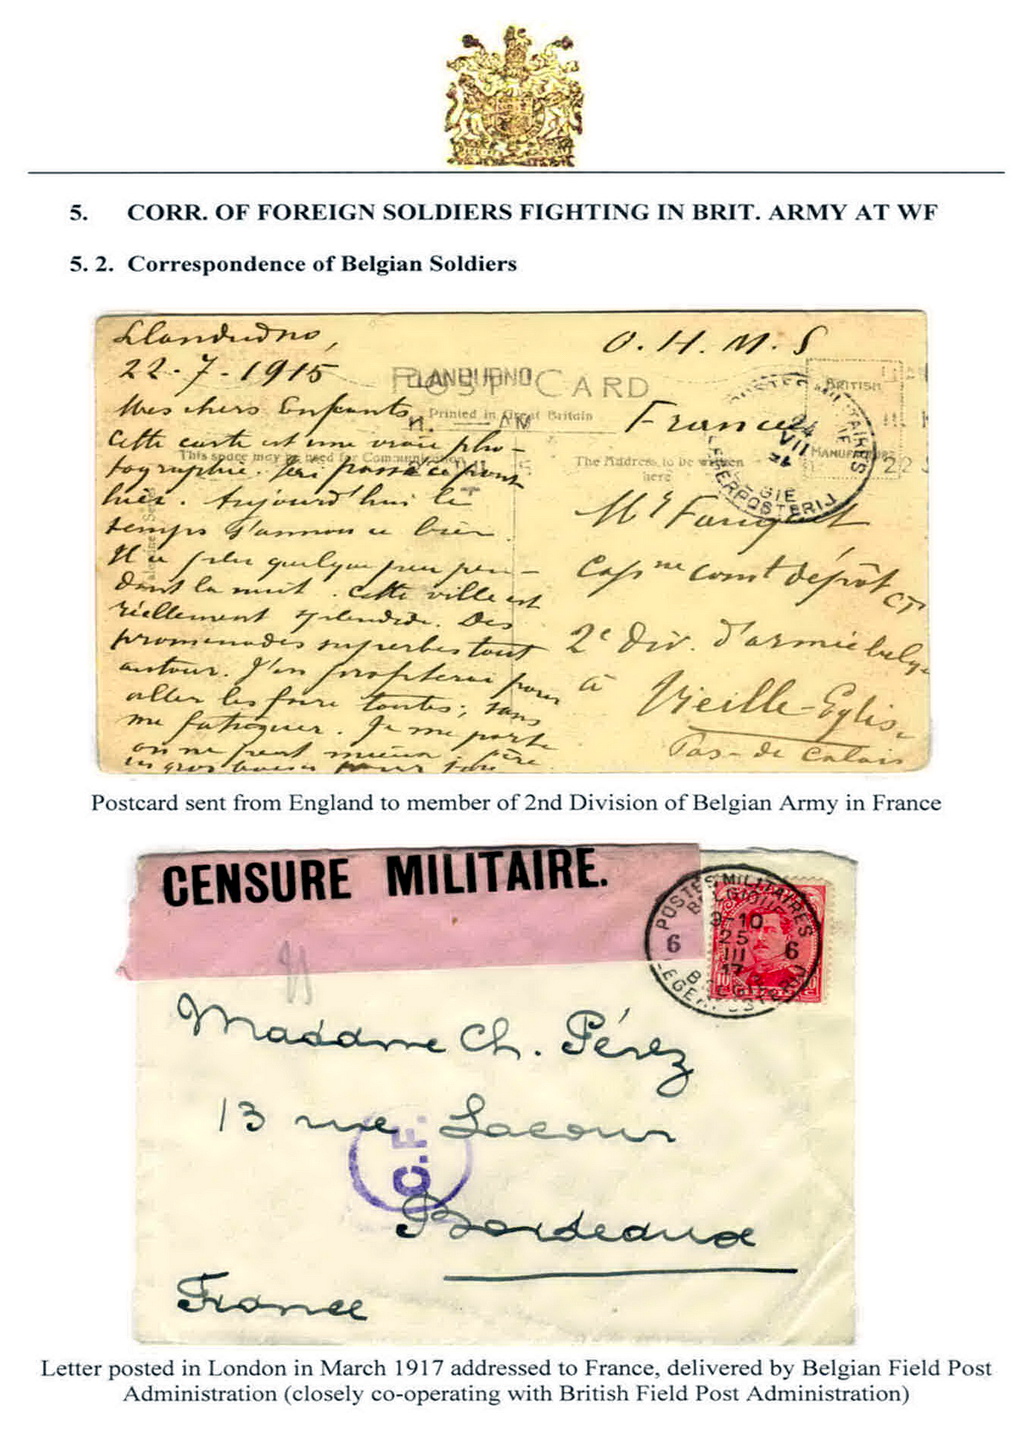 5. CORR. OF FOREIGN SOLDIERS FIGHTING IN BRIT. ARMY AT WF
5. 2. Correspondence of Belgian Soldiers
Llandudno,
22-7-1915
Mes chers Enfants,
Cette carte est une vraie pho-
tographie. J'ai passé ce pont
hier. Aujourd'hui le
temps s'annonce bien
Il a plu quelque peu pen-
dant la nuit. Cette ville est
réellement splendide. Des
promenades superbes tout
autour. J'en profiterai pour
aller les faire toutes; sans
me fatiguer. Je me porte
on ne peut mieux
POST CARD
LLANDUDNO
Printed in Great Britain
This space may be used for Communication
The Address to be written
here
BRITISH
MANUFACTURE
O.H.M.S
France
POSTES MILITAIRES
24
VII
LEGERPOSTERIJ
Mr
Capne comt dépôt
2e Div. d'armée belge
à Vieille-Eglise
Pas-de Calais
Postcard sent from England to member of 2nd Division of Belgian Army in France
CENSURE MILITAIRE.
POSTES MILITAIRES
BELGIQUE
9-10
25
III
17
6 6
BELGIE
LEGERPOSTERIJ
Madame Ch. Pérez
13 rue Lacour
C.F.
Bordeaux
France
Letter posted in London in March 1917 addressed to France, delivered by Belgian Field Post
Administration (closely co-operating with British Field Post Administration)